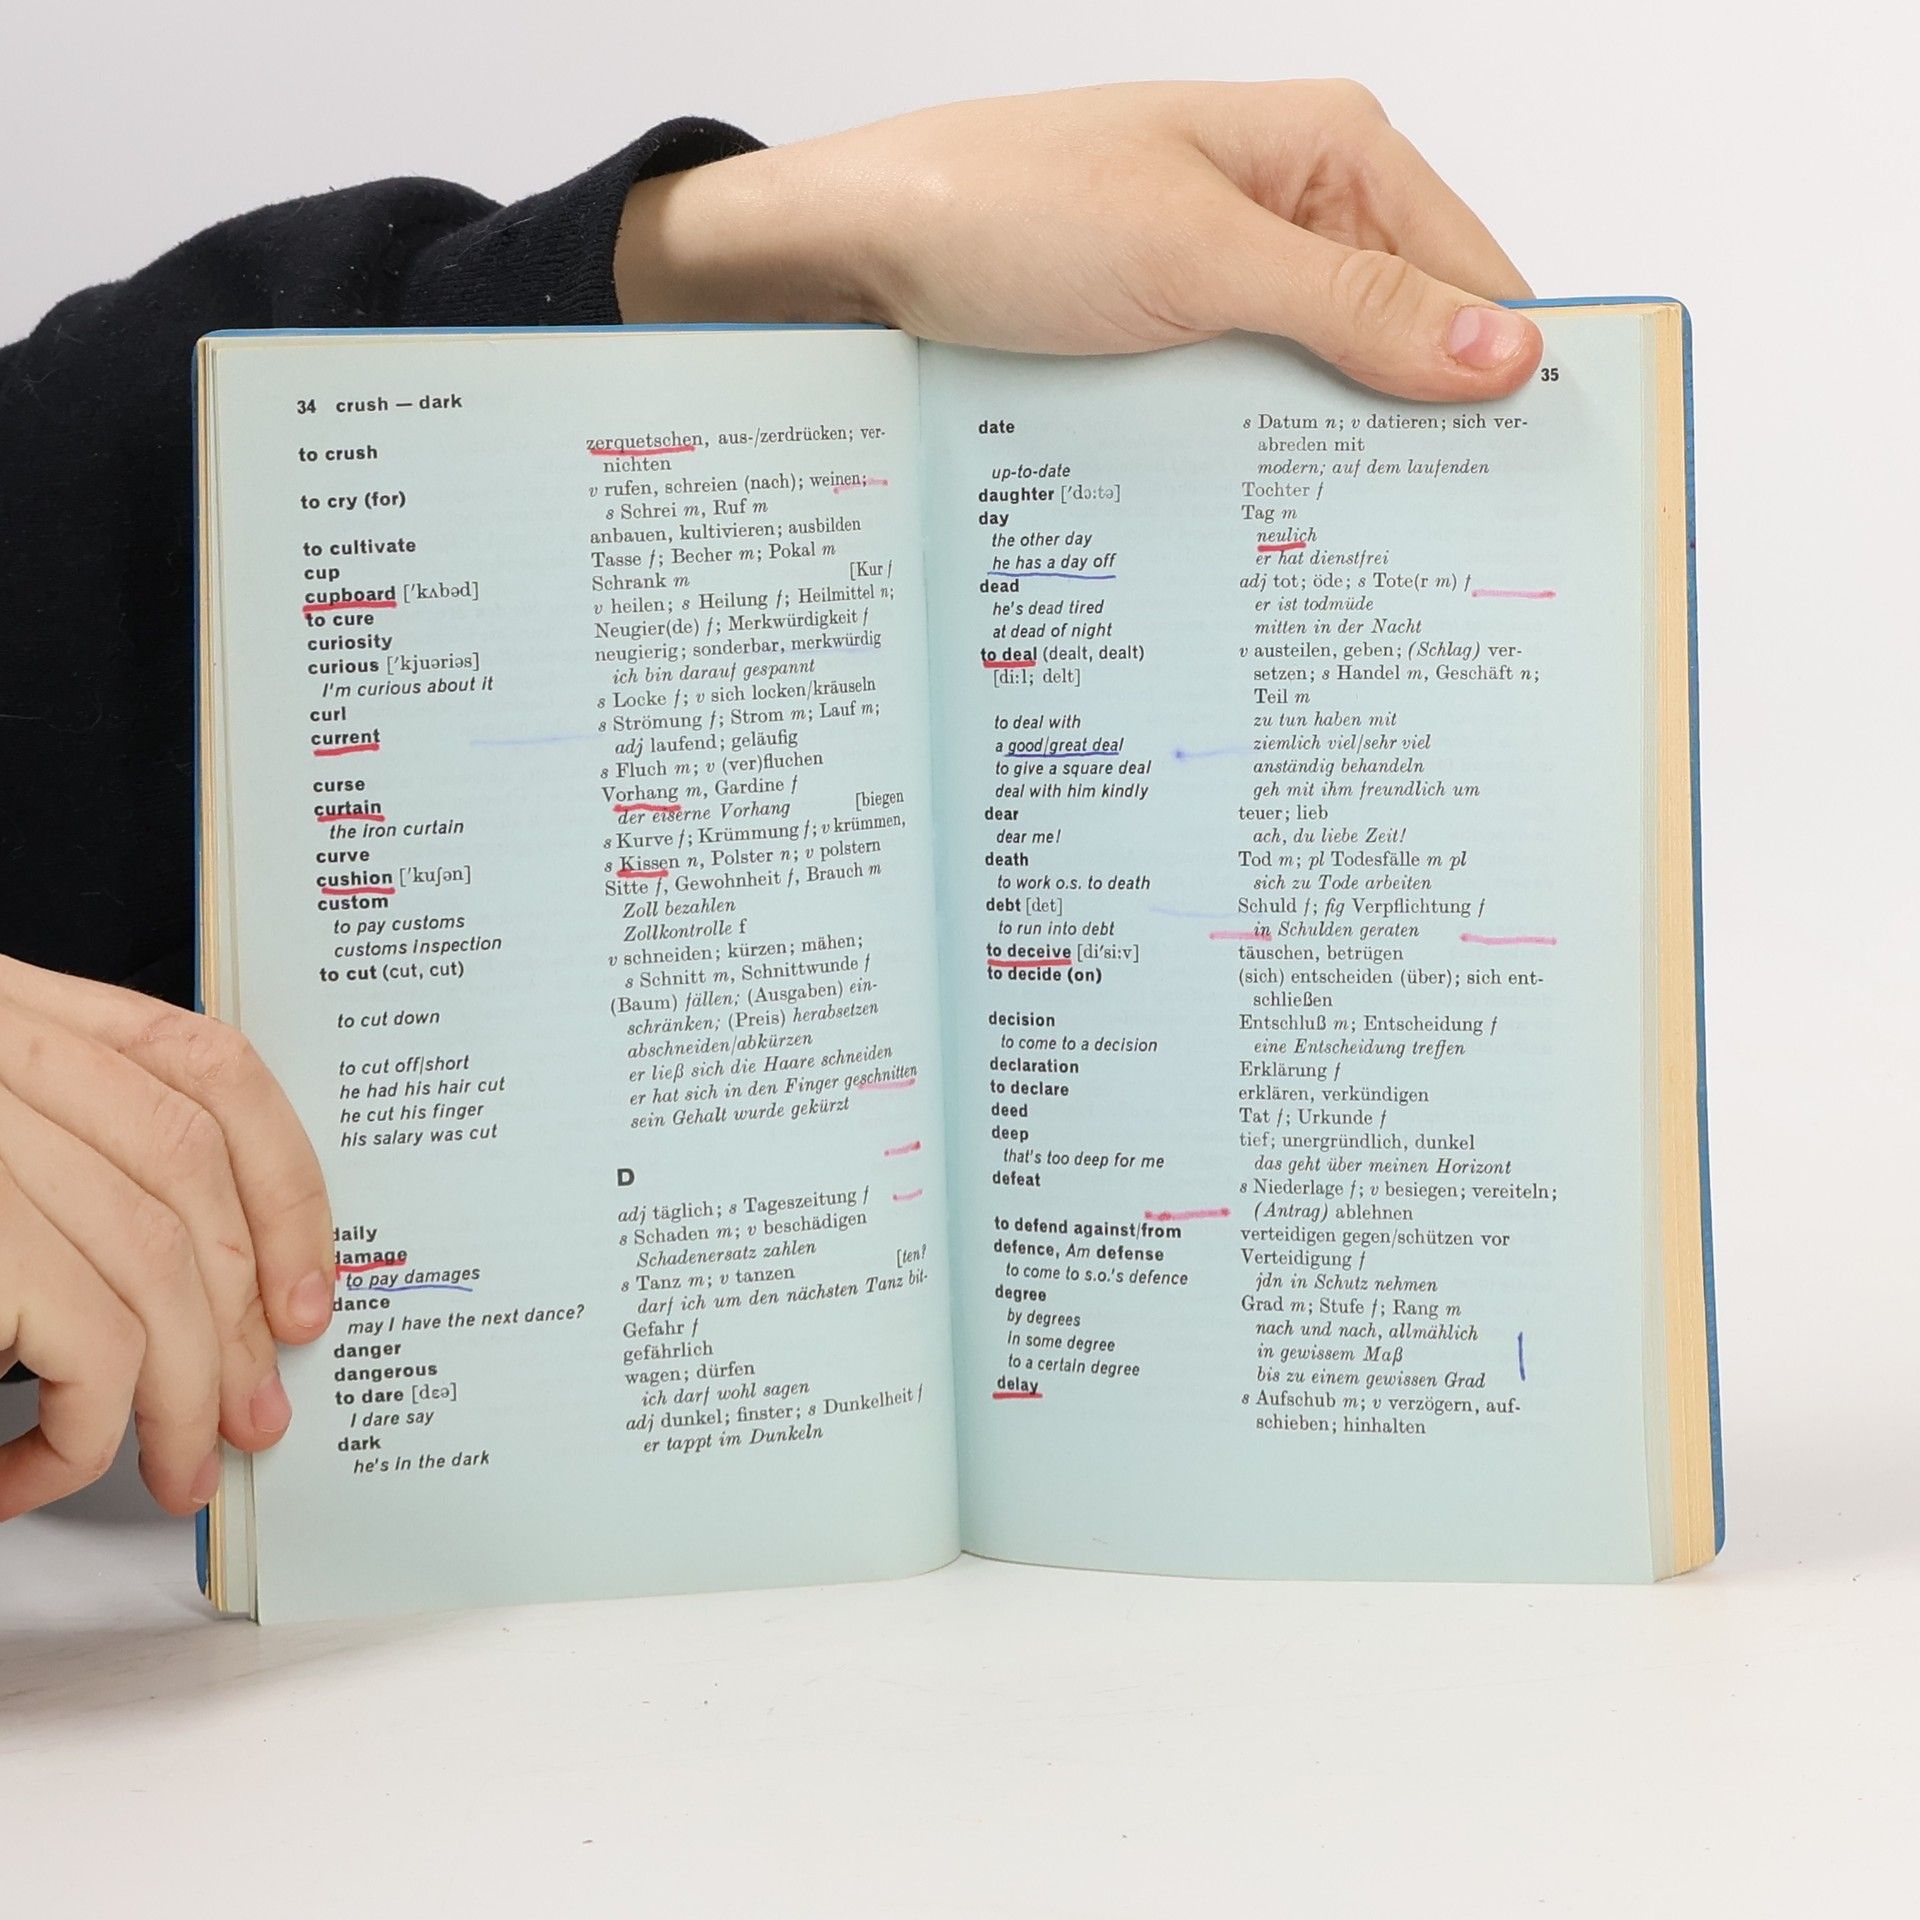 34 crush — dark
to crush
zerquetschen, aus-/zerdrücken; ver-
nichten
to cry (for)
v rufen, schreien (nach); weinen;
s Schrei m, Ruf m
to cultivate
anbauen, kultivieren; ausbilden
cup
Tasse f; Becher m; Pokal m
cupboard ['kʌbəd]
Schrank m [Kur f
to cure
v heilen; s Heilung f; Heilmittel n;
curiosity
Neugier(de) f; Merkwürdigkeit f
curious ['kjuəriəs]
neugierig; sonderbar, merkwürdig
I'm curious about it
ich bin darauf gespannt
curl
s Locke f; v sich locken/kräuseln
current
s Strömung f; Strom m; Lauf m;
adj laufend; geläufig
curse
s Fluch m; v (ver)fluchen
curtain
Vorhang m, Gardine f
the iron curtain
der eiserne Vorhang [biegen
curve
s Kurve f; Krümmung f; v krümmen,
cushion ['kuʃən]
s Kissen n, Polster n; v polstern
custom
Sitte f, Gewohnheit f, Brauch m
to pay customs
Zoll bezahlen
customs inspection
Zollkontrolle f
to cut (cut, cut)
v schneiden; kürzen; mähen;
s Schnitt m, Schnittwunde f
to cut down
(Baum) fällen; (Ausgaben) ein-
schränken; (Preis) herabsetzen
to cut off/short
abschneiden/abkürzen
he had his hair cut
er ließ sich die Haare schneiden
he cut his finger
er hat sich in den Finger geschnitten
his salary was cut
sein Gehalt wurde gekürzt
D
daily
adj täglich; s Tageszeitung f
damage
s Schaden m; v beschädigen
to pay damages
Schadenersatz zahlen
dance
s Tanz m; v tanzen [ten?
may I have the next dance?
darf ich um den nächsten Tanz bit-
danger
Gefahr f
dangerous
gefährlich
to dare [dɛə]
wagen; dürfen
I dare say
ich darf wohl sagen
dark
adj dunkel; finster; s Dunkelheit f
he's in the dark
er tappt im Dunkeln
35
date
s Datum n; v datieren; sich ver-
abreden mit
up-to-date
modern; auf dem laufenden
daughter ['dɔ:tə]
Tochter f
day
Tag m
the other day
neulich
he has a day off
er hat dienstfrei
dead
adj tot; öde; s Tote(r m) f
he's dead tired
er ist todmüde
at dead of night
mitten in der Nacht
to deal (dealt, dealt)
v austeilen, geben; (Schlag) ver-
[di:l; delt]
setzen; s Handel m, Geschäft n;
Teil m
to deal with
zu tun haben mit
a good/great deal
ziemlich viel/sehr viel
to give a square deal
anständig behandeln
deal with him kindly
geh mit ihm freundlich um
dear
teuer; lieb
dear me!
ach, du liebe Zeit!
death
Tod m; pl Todesfälle m pl
to work o.s. to death
sich zu Tode arbeiten
debt [det]
Schuld f; fig Verpflichtung f
to run into debt
in Schulden geraten
to deceive [di'si:v]
täuschen, betrügen
to decide (on)
(sich) entscheiden (über); sich ent-
schließen
decision
Entschluß m; Entscheidung f
to come to a decision
eine Entscheidung treffen
declaration
Erklärung f
to declare
erklären, verkündigen
deed
Tat f; Urkunde f
deep
tief; unergründlich, dunkel
that's too deep for me
das geht über meinen Horizont
defeat
s Niederlage f; v besiegen; vereiteln;
(Antrag) ablehnen
to defend against/from
verteidigen gegen/schützen vor
defence, Am defense
Verteidigung f
to come to s.o.'s defence
jdn in Schutz nehmen
degree
Grad m; Stufe f; Rang m
by degrees
nach und nach, allmählich
in some degree
in gewissem Maß
to a certain degree
bis zu einem gewissen Grad
delay
s Aufschub m; v verzögern, auf-
schieben; hinhalten